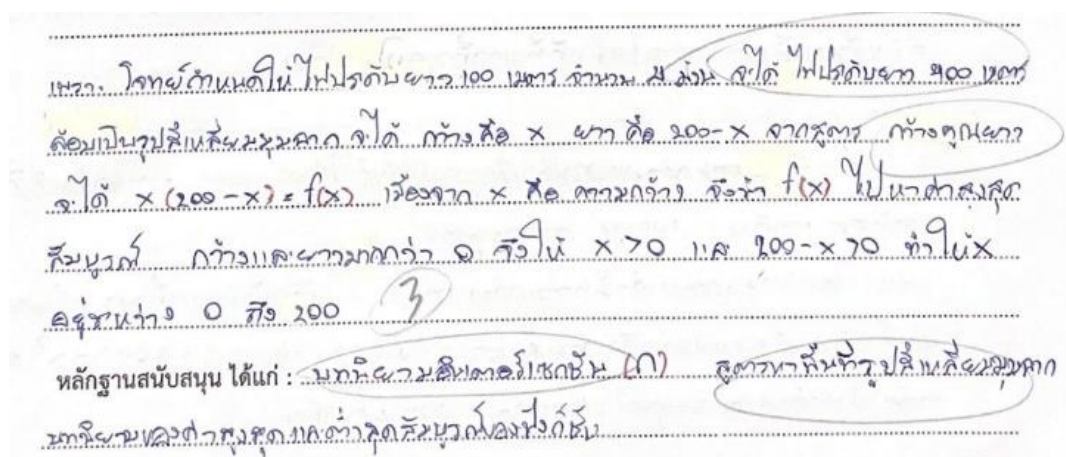 เพราะ โจทย์กำหนดให้ ไฟประดับยาว 100 เมตร จำนวน 4 ม้วน จะได้ ไฟประดับยาว 400 เมตร
ล้อมเป็นรูปสี่เหลี่ยมมุมฉาก จะได้ กว้างคือ x ยาว คือ 200-x จากสูตร กว้างคูณยาว
จะได้ x (200-x) = f(x) เนื่องจาก x คือ ความกว้าง จึงนำ f(x) ไปหาค่าสูงสุด
สัมบูรณ์ กว้างและยาวมากกว่า 0 จึงให้ x > 0 และ 200-x > 0 ทำให้ x
อยู่ระหว่าง 0 ถึง 200 3
หลักฐานสนับสนุน ได้แก่ : บทนิยามอินเตอร์เซกชัน (∩) สูตรหาพื้นที่รูปสี่เหลี่ยมมุมฉาก
บทนิยามของค่าสูงสุดและต่ำสุดสัมบูรณ์ของฟังก์ชัน